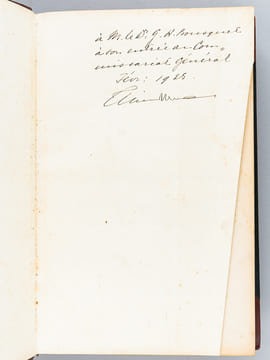 à M. le Dr. G. H. Bousquet
à son entrée au Com-
missariat Général
Févr: 1925